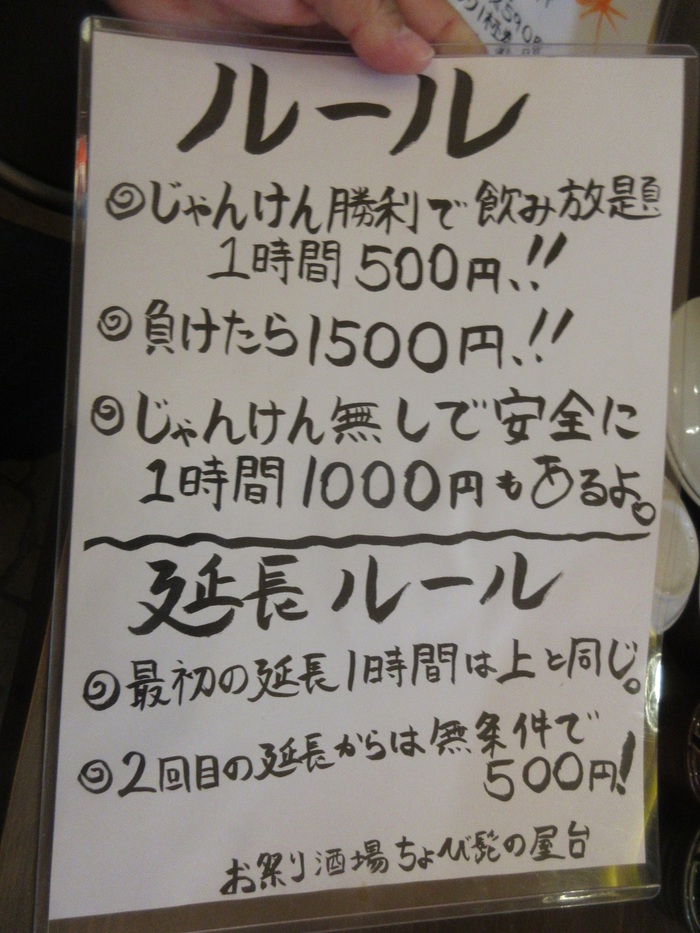 ルール
じゃんけん勝利で飲み放題
1時間500円、!!
負けたら1500円、!!
じゃんけん無しで安全に
1時間1000円もあるよ。
延長ルール
最初の延長1時間は上と同じ。
2回目の延長からは無条件で
500円!
お祭り酒場ちょび髭の屋台